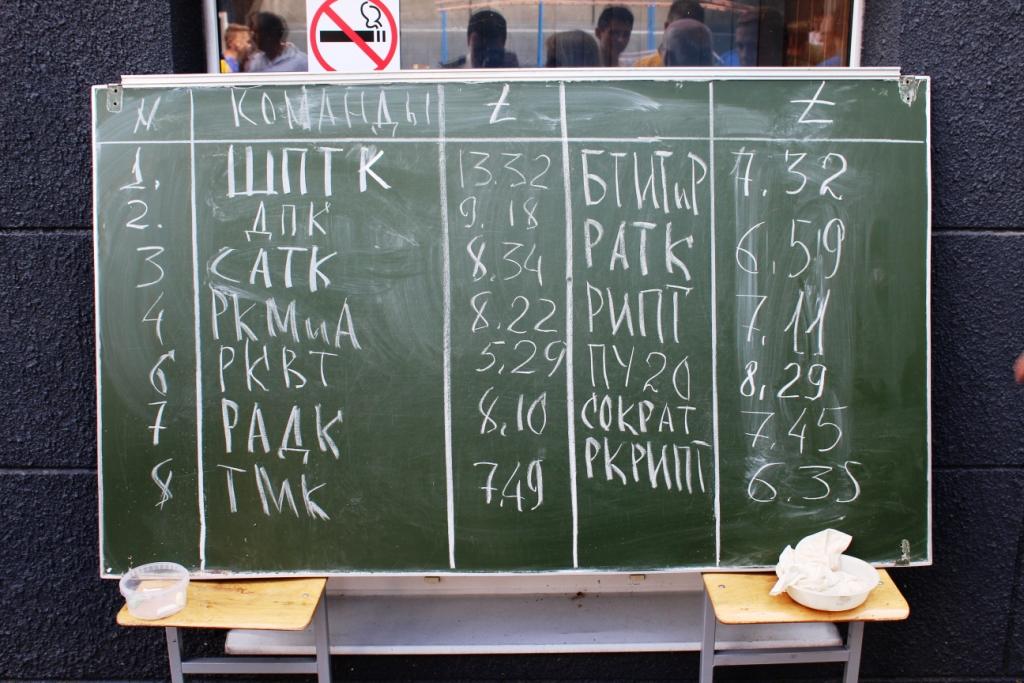 N КОМАНДЫ t t
1. ШПТК 13.32 БТИТиР 7.32
2. ДПК 9.18 РАТК 6.59
3 САТК 8.34 РИПТ 7.11
4 РКМиА 8.22 ПУ20 8,29
6 РКВТ 5,29 СОКРАТ 7.45
7 РАДК 8,10 РКРИПТ 6.35
8 ТМК 7,49